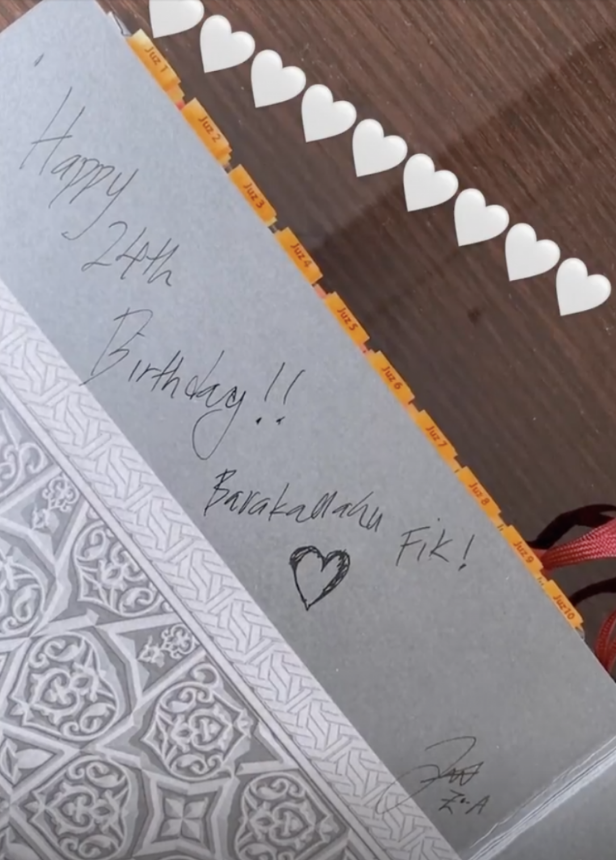 Happy
24th
Birthday!!
Barakallahu Fik!
Z.A
Juz 1
Juz 2
Juz 3
Juz 4
Juz 5
Juz 6
Juz 7
Juz 8
Juz 9
Juz 10